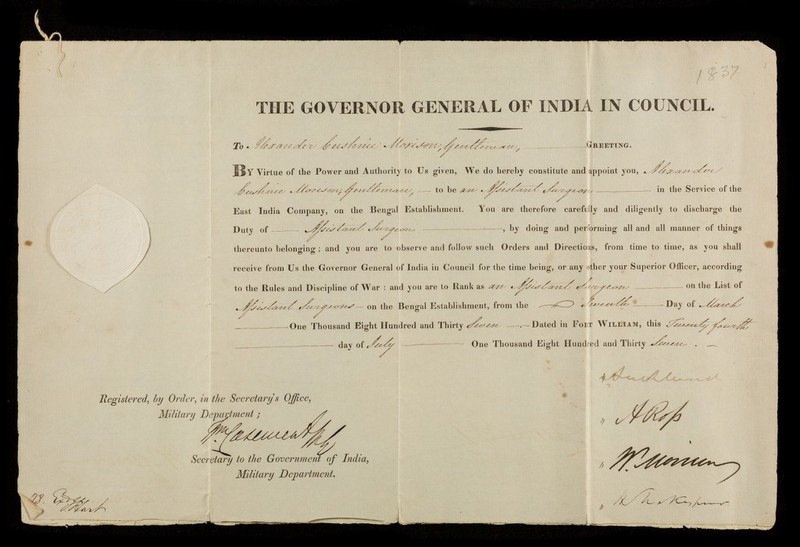 1837
THE GOVERNOR GENERAL OF INDIA IN COUNCIL.
To Alexander Cushnie Morison, Gentleman, GREETING.
BY Virtue of the Power and Authority to Us given, We do hereby constitute and appoint you, Alexander
Cushnie Morison, Gentleman, to be an Assistant Surgeon in the Service of the
East India Company, on the Bengal Establishment. You are therefore carefully and diligently to discharge the
Duty of Assistant Surgeon, by doing and performing all and all manner of things
thereunto belonging; and you are to observe and follow such Orders and Directions, from time to time, as you shall
receive from Us the Governor General of India in Council for the time being, or any other your Superior Officer, according
to the Rules and Discipline of War : and you are to Rank as an Assistant Surgeon on the List of
Assistant Surgeons on the Bengal Establishment, from the Twentieth Day of March
One Thousand Eight Hundred and Thirty Seven Dated in FORT WILLIAM, this Twenty fourth
day of July One Thousand Eight Hundred and Thirty Seven.
Auckland
Registered, by Order, in the Secretary's Office,
Military Department;
A Ross
Wm Casement
Secretary to the Government of India,
Military Department.
W. Morison